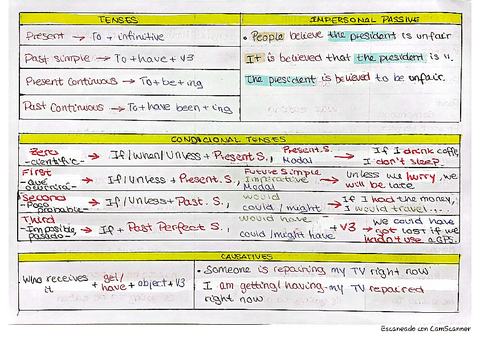 TENSES
IMPERSONAL PASSIVE
Present → To + infinitive
Past simple → To + have + V3
Present continuous → To + be + ing
Past Continuous → To + have been + ing
• People believe the president is unfair
It is believed that the president is ".
The president is believed to be unfair.
CONDICIONAL TENSES
Zero
-científic-
→ If/When/Unless + Present S., Present S.
Modal
→ If I drink coffe,
I don't sleep.
First
-que
ocurrirá-
→ If/Unless + Present S., Future Simple
Imperative
Modal
→ Unless we hurry, we
will be late
Second
-Poco
probable-
→ If/Unless + Past S., would
could/might
→ If I had the money,
I would travel...
Third
-Imposible,
pasado-
→ If + Past Perfect S., would have
could/might have + V3
→ we could have
not lost if we
hadn't use a GPS.
CAUSATIVES
Who receives
it
+ get/
have + object + V3
• Someone is repairing my TV right now
I am getting/having my TV repaired
right now
Escaneado con CamScanner